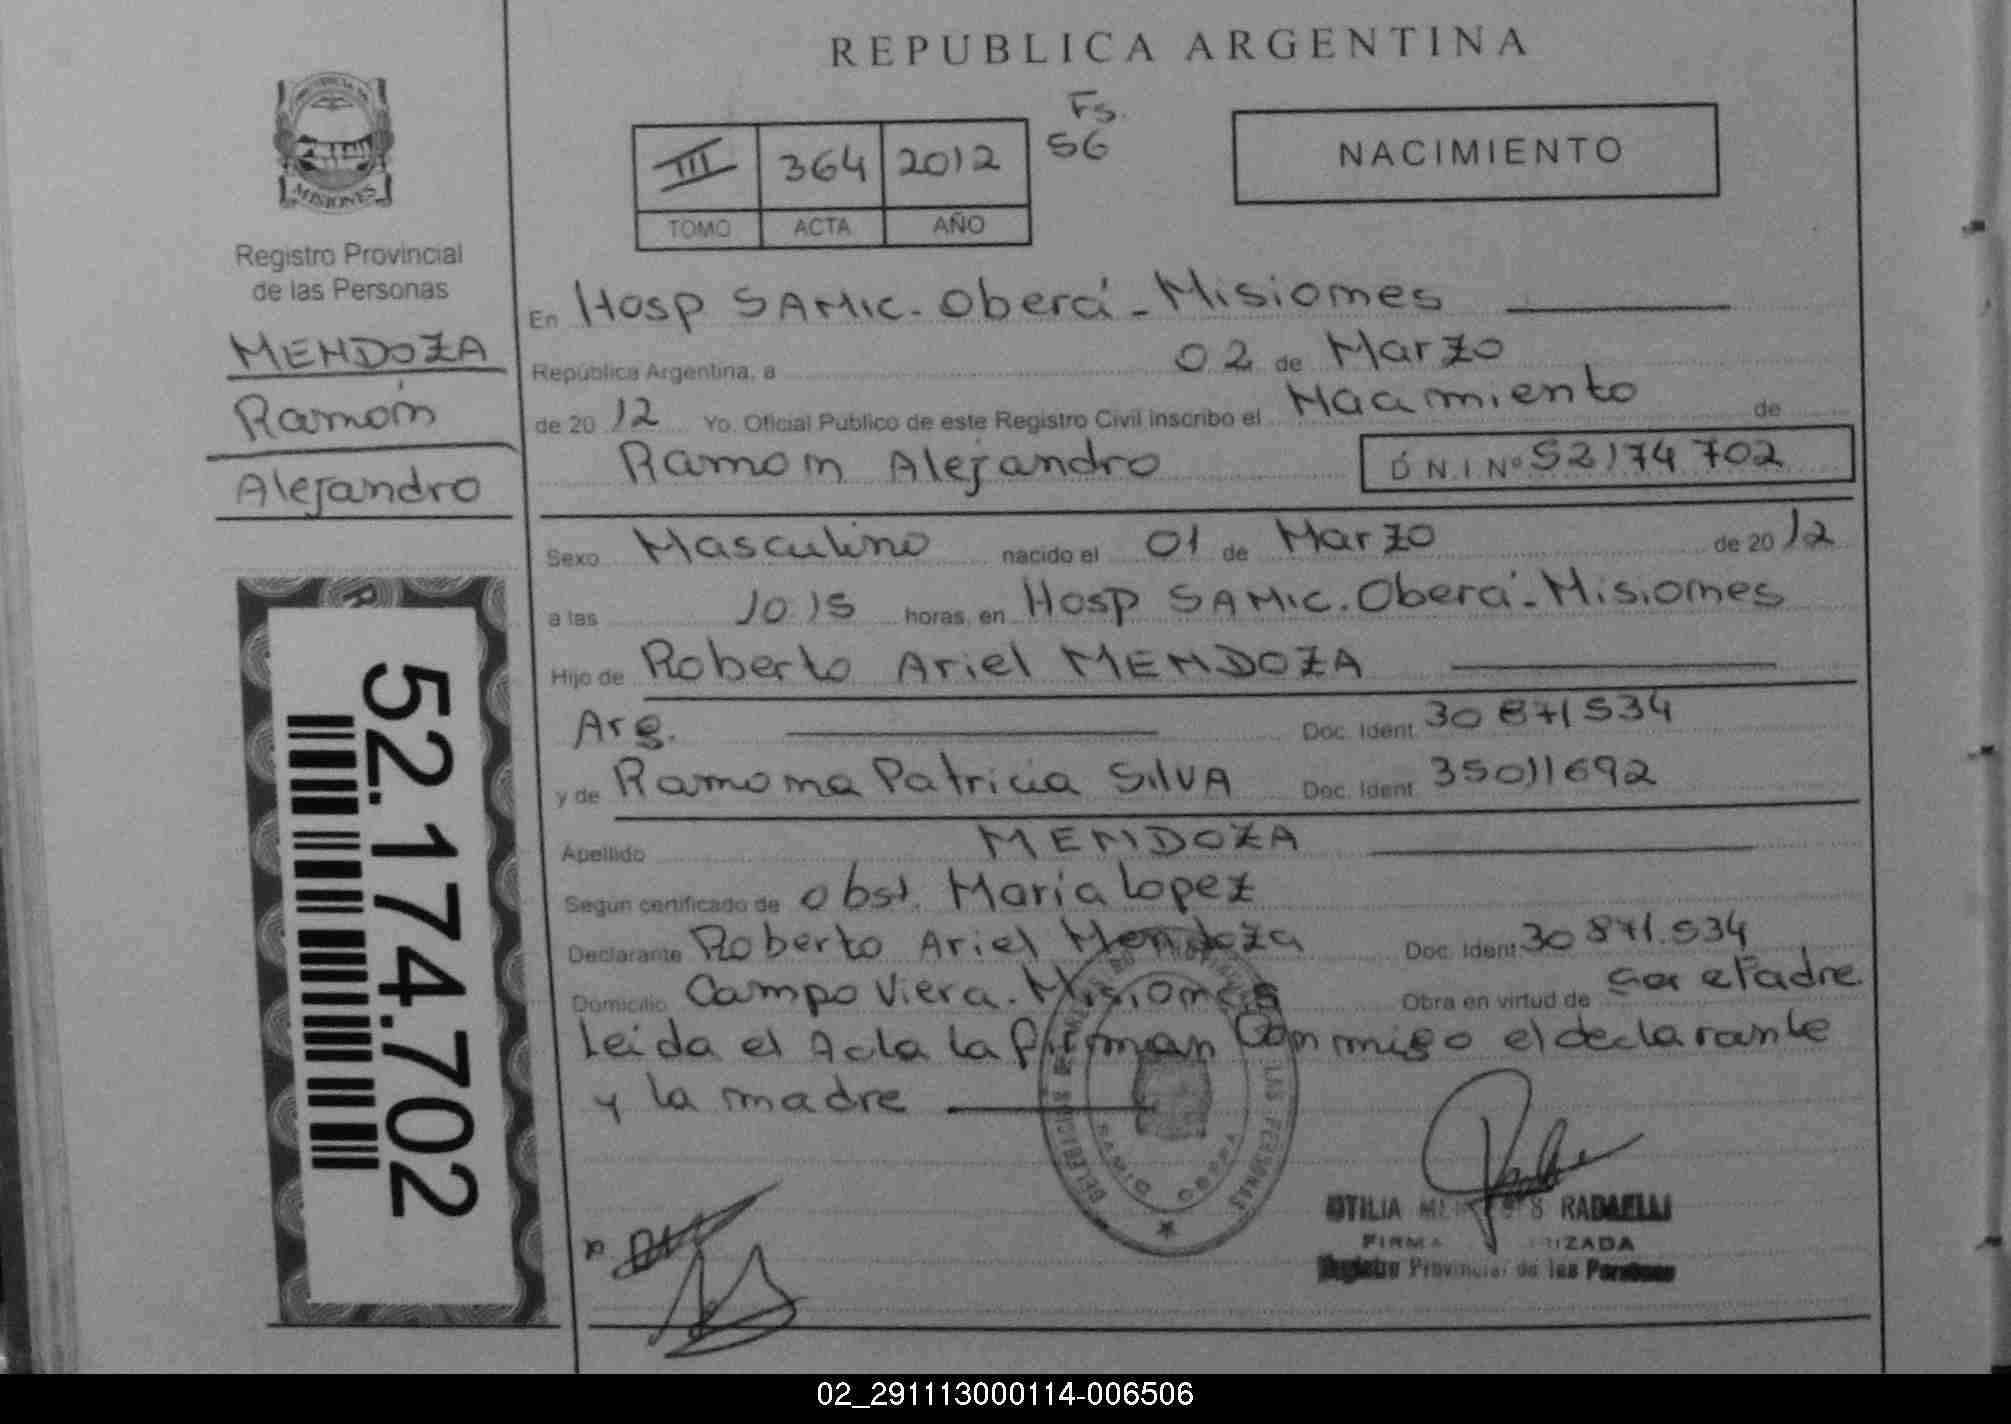 REPUBLICA ARGENTINA
PROVINCIA DE
MISIONES
Registro Provincial
de las Personas
MENDOZA
Ramón
Alejandro
52.174.702
III 364 2012
TOMO ACTA AÑO
Fs.
56
NACIMIENTO
En Hosp SAMIC. Oberá - Misiones
República Argentina, a 02 de Marzo
de 2012 Yo, Oficial Público de este Registro Civil inscribo el Nacimiento de
Ramon Alejandro D.N.I.Nº 52174702
Sexo Masculino nacido el 01 de Marzo de 2012
a las 10.15 horas, en Hosp SAMIC. Oberá - Misiones
Hijo de Roberto Ariel MENDOZA
Arg. Doc. Ident. 30871534
y de Ramona Patricia SILVA Doc. Ident. 35011692
Apellido MENDOZA
Según certificado de Obst. María Lopez
Declarante Roberto Ariel Mendoza Doc. Ident. 30871.534
Domicilio Campo Viera. Misiones Obra en virtud de ser el Padre
Leida el Acta la firman Conmigo el declarante
y la madre
LAS PERSONAS
OTILIA RADAELLI
FIRMA
Registro Provincial de las Personas
02_291113000114-006506